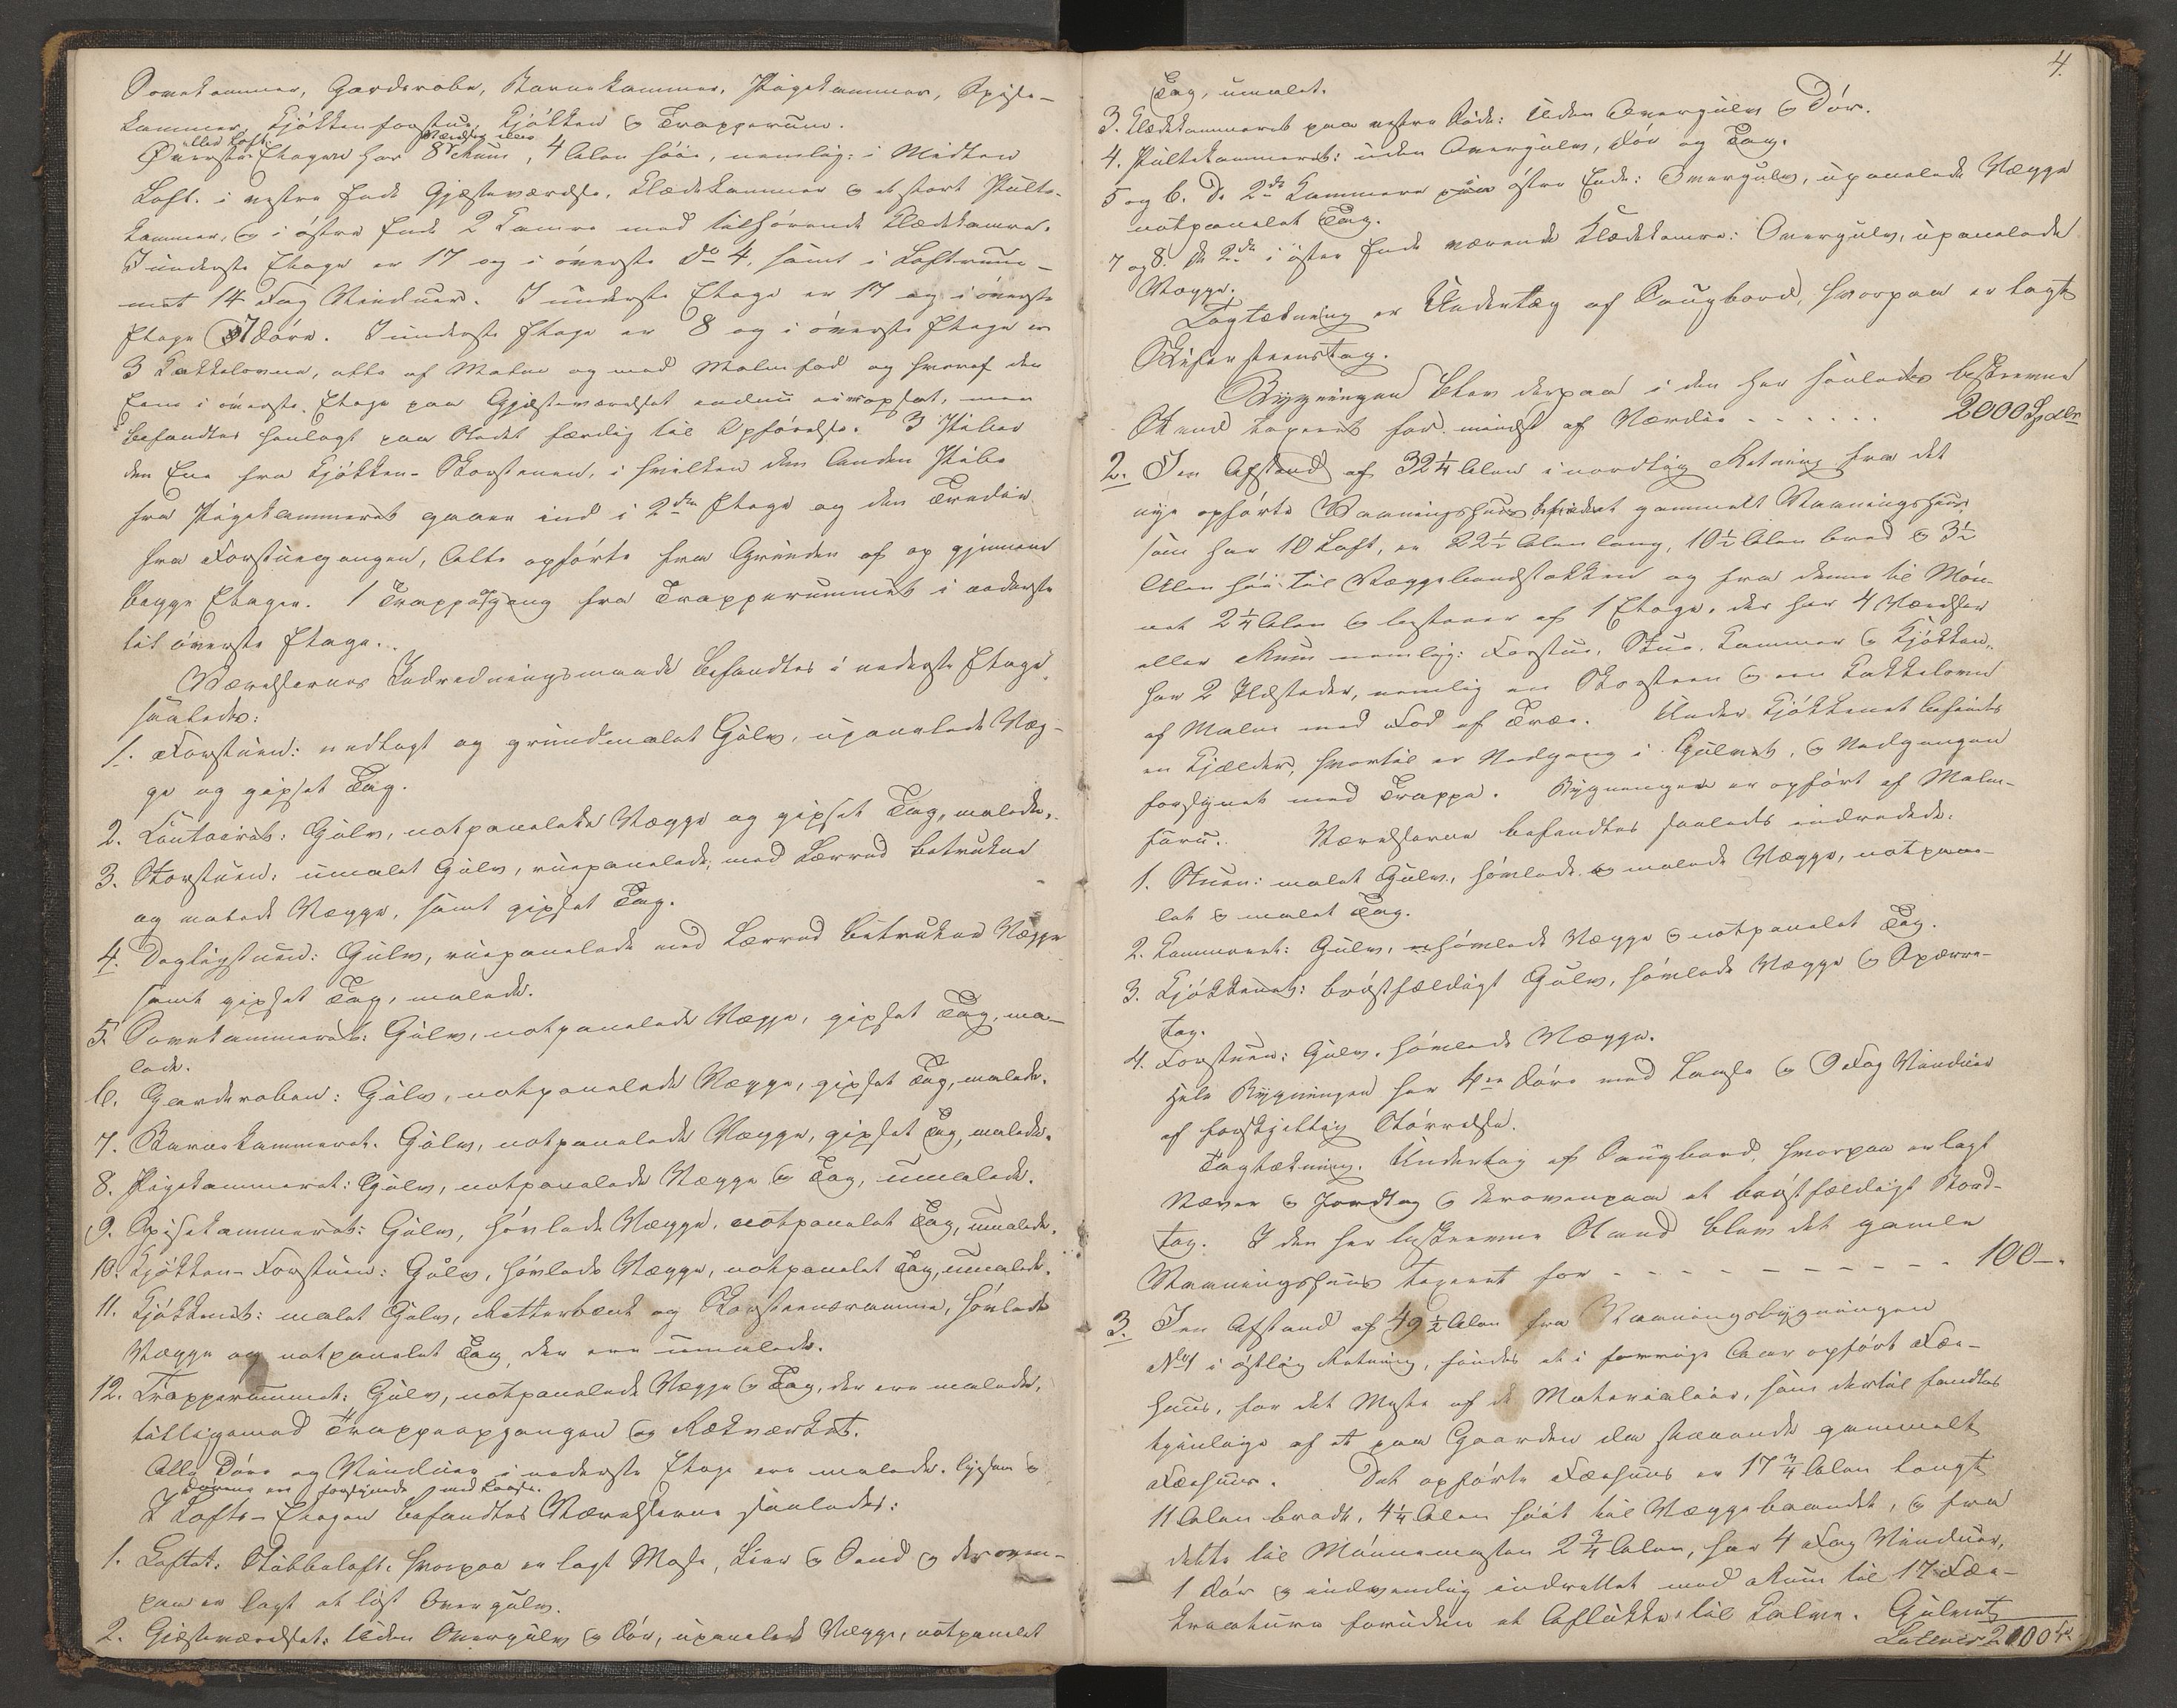 Sovekammer, Garderobe, Barnekammer, Pigekammer, Spise-
kammer, Kjøkkenforstue, Kjøkken & Trapperum.
eller Loft- Værelser eller
Øverste Etagen har 8 Rum, 4 Alen høie, nemlig: i Midten
Loft, i vestre Ende Gjæsteværelse, Klædekammer & et stort Pulte-
kammer, & i østre Ende 2 Kamre med tilhørende Klædekamre.
I underste Etage er 17 og i øverste do 4, samt i Loftrum-
met 14 Fag Vinduer. I underste Etage er 17 og i øverste
Etage 7 Døre. I underste Etage er 8 og i øverste Etage er
3 Kakkelovne, alle af Malm og med Malmfod og hvoraf den
Ene i øverste Etage paa Gjæsteværelset endnu ei opsat, men
befandtes henlagt paa Stedet færdig til Opførelse. 3 Piber
den Ene fra Kjøkken-Skorstenen, i hvilken den Anden Pibe
fra Pigekammeret gaaer ind i 2den Etage og den Tredie
fra Forstuegangen, Alle opførte fra Grunden af op gjennem
begge Etager. 1 Trappegang fra Trapperummet i nederste
til øverste Etage.
Værelsernes Indredningsmaade befandtes i nederste Etage
saaledes:
1. Forstuen: nedlagt og grundmalet Gulv, upanelede Væg-
ge og gipset Tag.
2. Kontoiret: Gulv, notpanelede Vægge og gipset Tag, malede.
3. Storstuen: umalet Gulv, ruepanelede, med Lærred betrukne
og malede Vægge, samt gipset Tag.
4. Dagligstuen: Gulv, ruepanelede med Lærred betrukne Vægge
samt gipset Tag, malede.
5. Sovekammeret: Gulv, notpanelede Vægge, gipset Tag, ma-
lede.
6. Garderoben: Gulv, notpanelede Vægge, gipset Tag, malede.
7. Barnekammeret. Gulv, notpanelede Vægge, gipset Tag, malede.
8. Pigekammeret: Gulv, notpanelede Vægge & Tag, umalede.
9. Spisekammeret: Gulv, høvlede Vægge, notpanelet Tag, umalede.
10. Kjøkken-Forstuen: Gulv, høvlede Vægge, notpanelet Tag, umalede.
11. Kjøkkenet: malet Gulv, Retterbænk og Skorsteensramme, høvlede
Vægge og notpanelet Tag, der ere umalede.
12. Trapperummet: Gulv, notpanelede Vægge & Tag, der ere malede,
tilligemed Trappeopgangen og Rækværket.
Alle Døre og Vinduer i nederste Etage ere malede.
Dørene ere forsynede med Laase.
I Lofts-Etagen befandtes Værelserne saaledes:
1. Loftet: Stubbeloft, hvorpaa er lagt Mose, Leer & Sand & deroven-
paa er lagt et løst Overgulv.
2. Gjæsteværelset: Uden Overgulv & Dør, upanelede Vægge, notpanelet
4.
Tag, umalet.
3. Klædekammeret paa vestre Side: Uden Overgulv & Dør.
4. Pultekammeret: uden Overgulv, Dør og Tag.
5 og 6. De 2de Kammere paa østre Ende: Overgulv, upanelede Vægge
notpanelet Tag.
7 og 8. De 2de i østre Ende værende Klædekamre: Overgulv, upanelede
Vægge.
Tagtækning er Undertag af Saugbord, hvorpaa er lagt
Skifersteenstag.
Bygningen blev derpaa i den her saaledes beskrevne
Stand taxeret for mindst af Værdie - - - - - - 2000 Spdlr
2. I en Afstand af 32¼ Alen i nordlig Retning fra det
nye opførte Vaaningshuus befindes et gammelt Vaaningshuus,
som har 10 Laft, er 22½ Alen lang, 10½ Alen bred & 3½
Alen høi til Væggebaandstokken og fra denne til Møn-
net 2¼ Alen & bestaaer af 1 Etage, der har 4 Værelser
eller Rum nemlig: Forstue, Stue, Kammer & Kjøkken,
har 2 Ildsteder, nemlig en Skorsteen & en Kakkelovn
af Malm med Fod af Træe. Under Kjøkkenet befindes
en Kjælder, hvortil er Nedgang i Gulvet, & Nedgangen
forsynet med Trappe. Bygningen er opført af Malm-
furu. Værelserne befandtes saaledes indredede:
1. Stuen: malet Gulv, høvlede & malede Vægge, notpane-
let & malet Tag.
2. Kammeret: Gulv, høvlede Vægge & notpanelet Tag.
3. Kjøkkenet: brøstfældigt Gulv, høvlede Vægge & Sperre-
tag.
4. Forstuen: Gulv, høvlede Vægge.
Hele Bygningen har 4re Døre med Laase & 9 Fag Vinduer
af forskjellig Størrelse.
Tagtækning: Undertag af Saugbord, hvorpaa er lagt
Næver & Jordtag & derovenpaa et brøstfældigt Bord-
tag. I den her beskrevne Stand blev det gamle
Vaaningshuus taxeret for - - - - - - - - - - - 100 -.
3. I en Afstand af 49½ Alen fra Vaaningsbygningen
No 1 i østlig Retning, findes et i forrige Aar opført Fæe-
huus, for det Meste af de Materialier, som dertil fandtes
tjenlige af et paa Gaarden da staaende gammelt
Fæehuus. Det opførte Fæehuus er 17¾ Alen langt
11 Alen bredt, 4¼ Alen høit til Væggebaandet, & fra
dette til Mønnemasten 2¾ Alen, har 4 Fag Vinduer,
1 Dør & indvendig indrettet med Rum til 17 Fæe-
kreature foruden et Aflukke til Kalve. Gulvet
Lateris 2100 Sp.